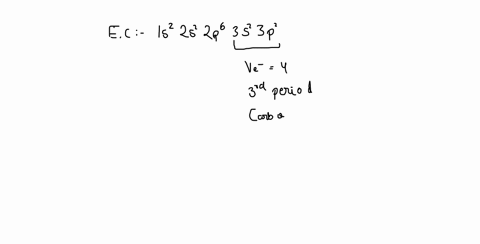 E.C :- 1s² 2s² 2p⁶ 3s² 3p²
Ve⁻ = 4
3rd period